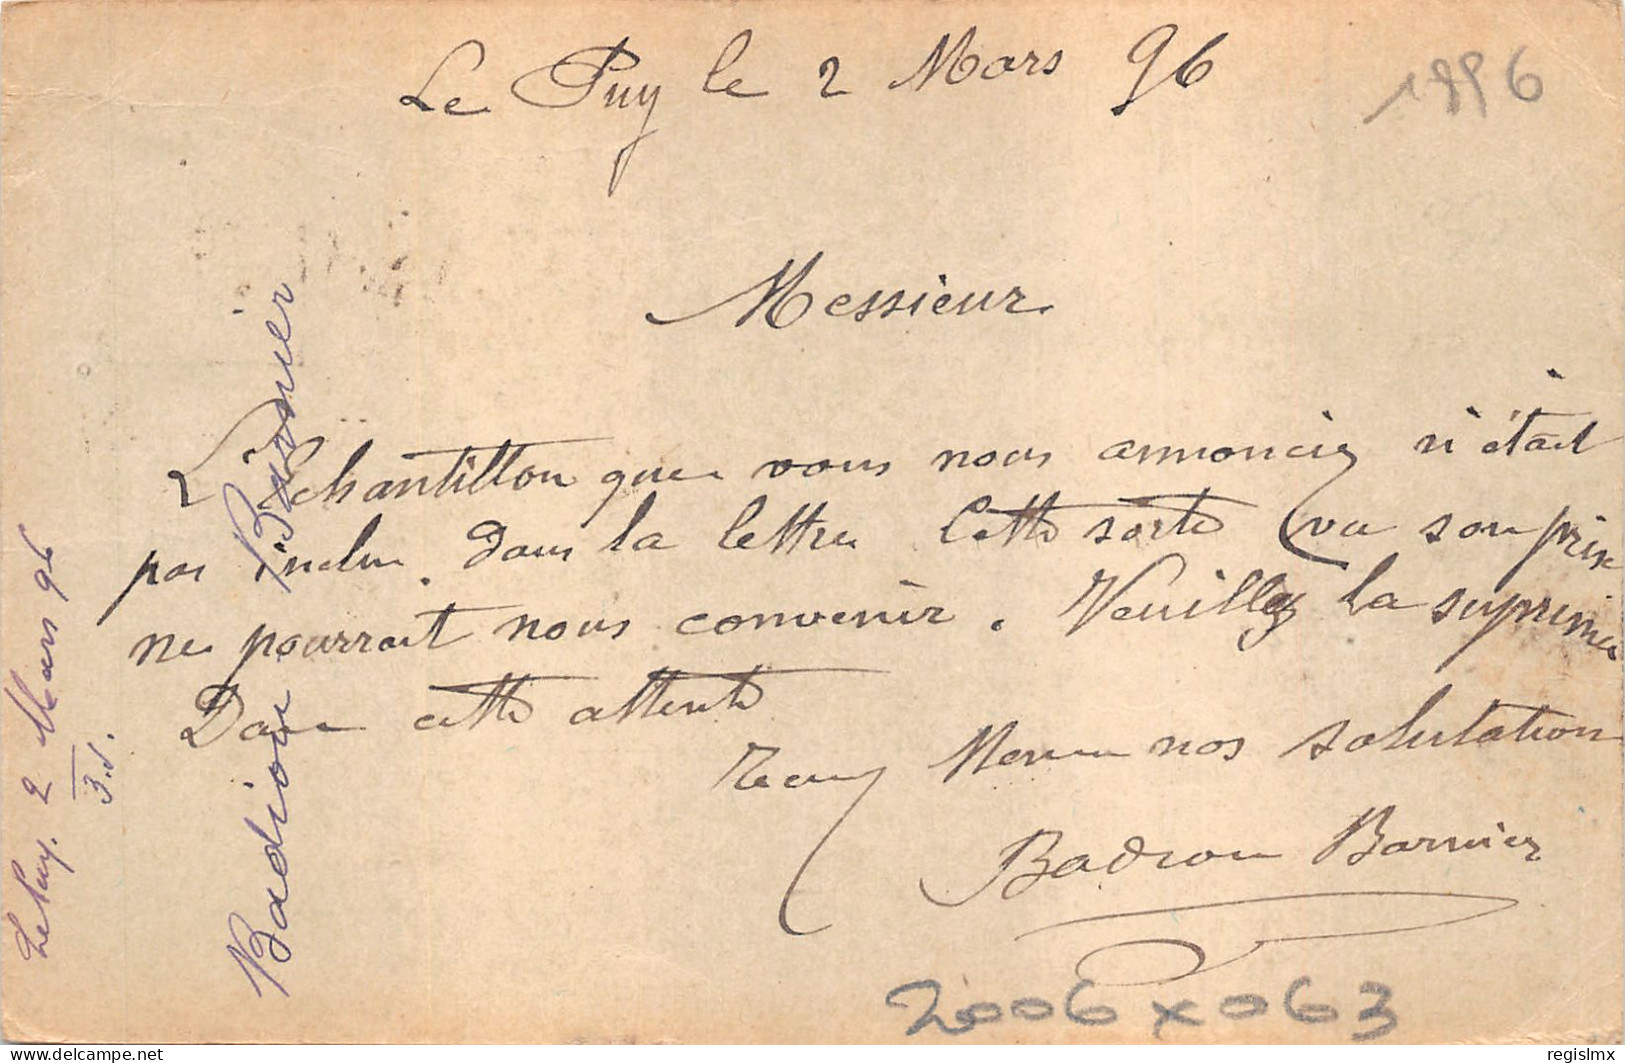 Le Puy le 2 Mars 96
1896
Messieur
L'Echantillon que vous nous annonciez n'était
pas inclu dans la lettre Cette sorte vu son prix
ne pourrait nous convenir. Veuillez la suprimer
Dans cette attente
nos salutation
Badiou Barnier
Badiou Barnier
Le Puy. 2 Mars 96
2006 x 063
delcampe.net
regislmx